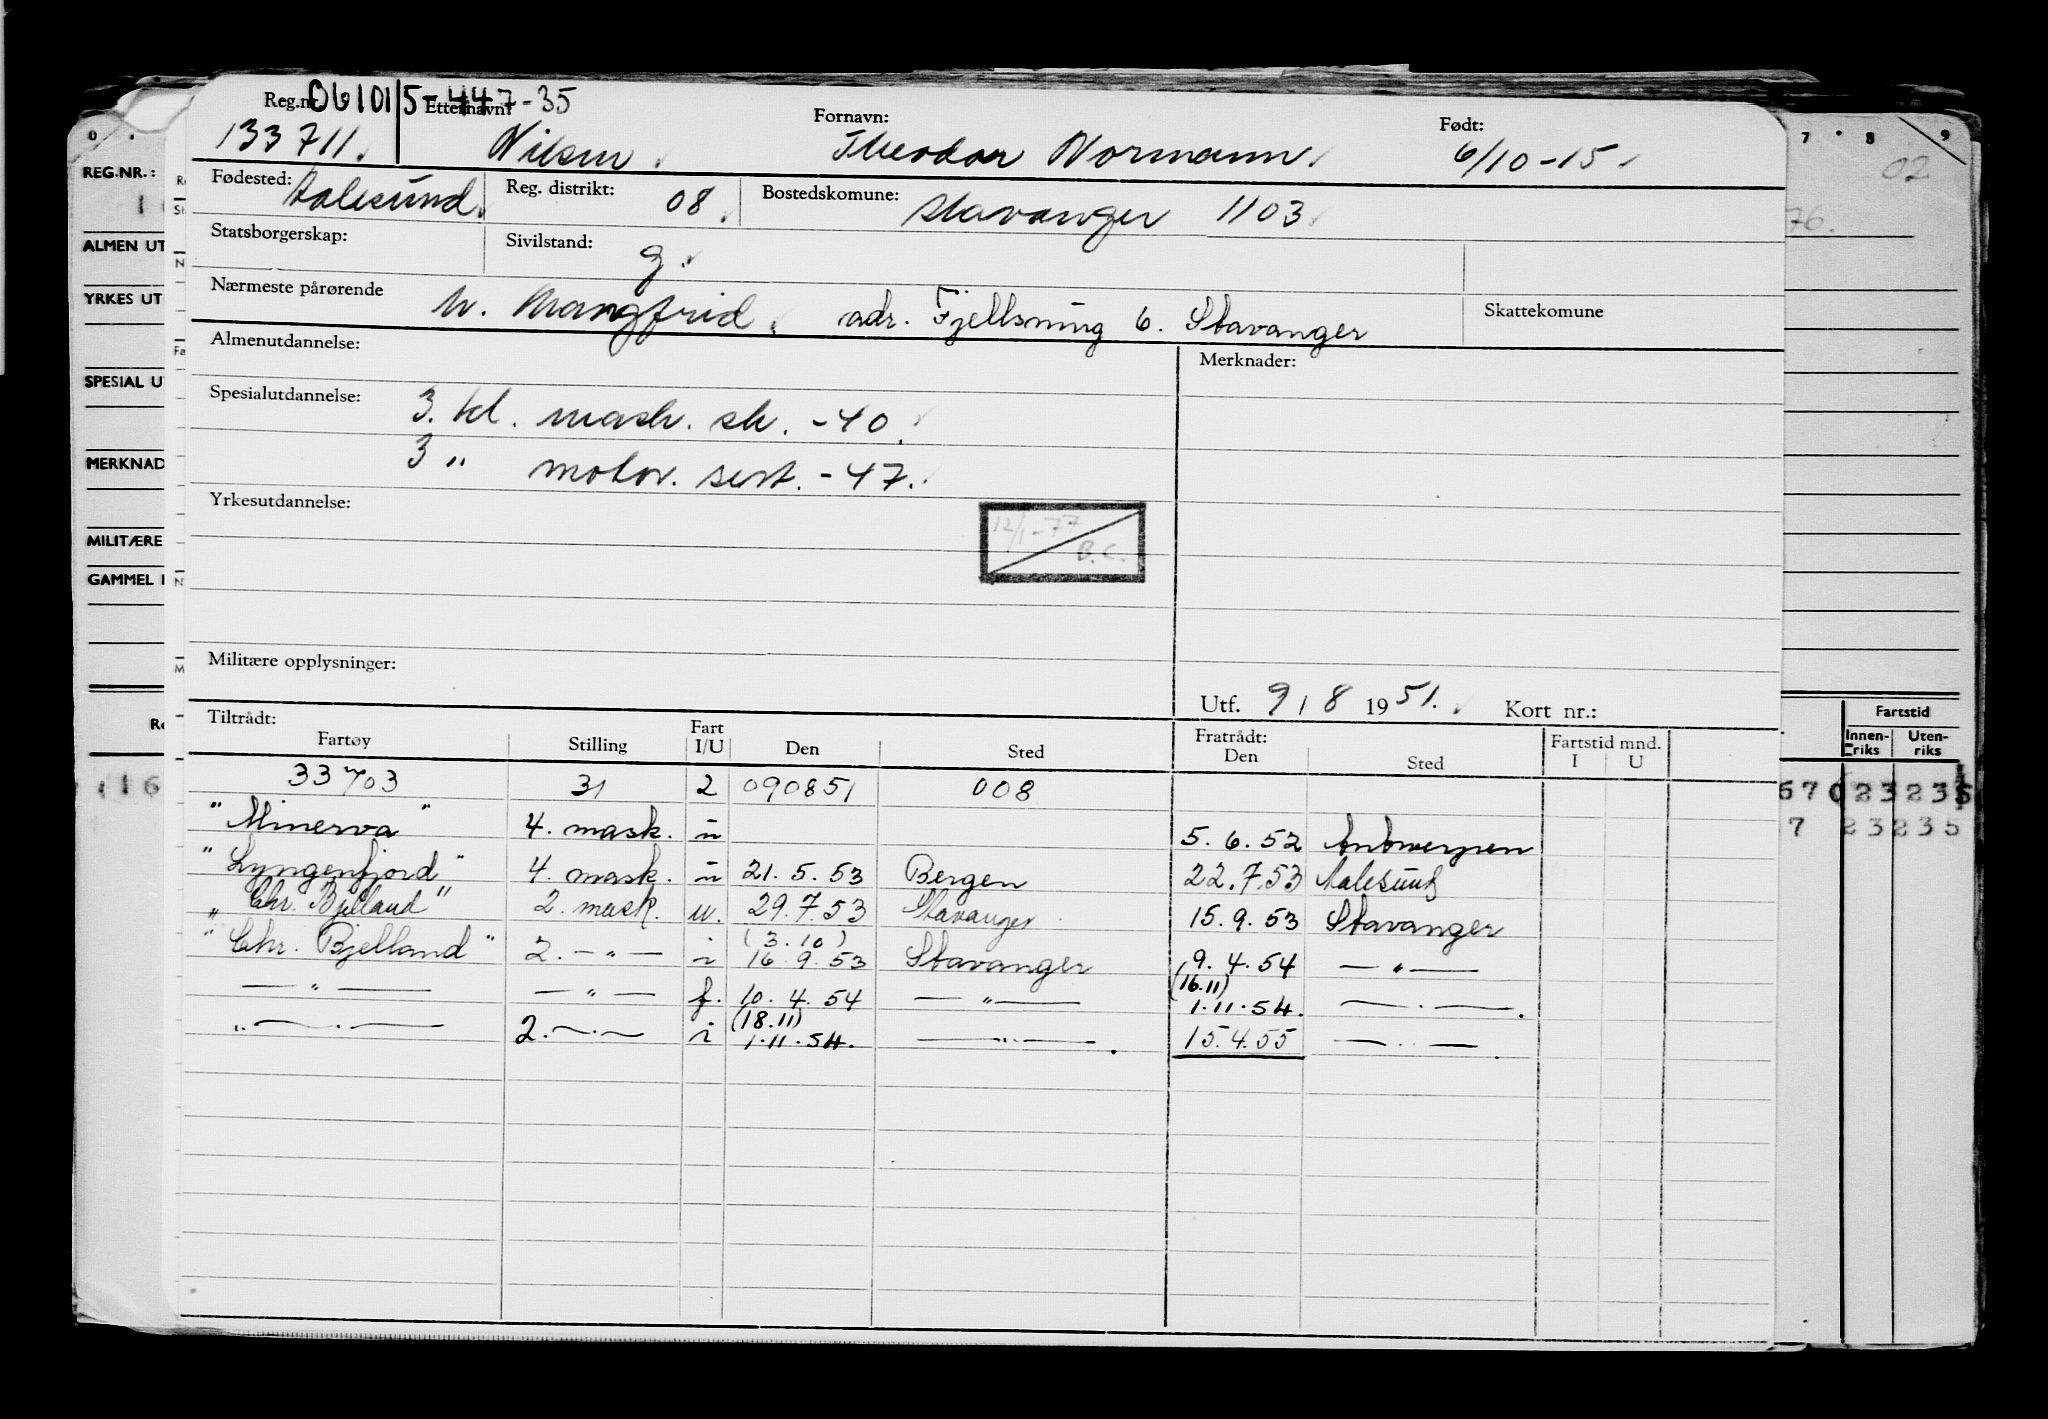 Reg.nr. 061015-447-35 Etternavn: Fornavn: Født:
133711. Nilsen Theodor Normann 6/10-15
Fødested: Aalesund Reg. distrikt: 08 Bostedskomune: Stavanger 1103
Statsborgerskap: Sivilstand: g.
Nærmeste pårørende h. Mangfrid. adr. Fjellsning 6. Stavanger Skattekomune
Almenutdannelse: Merknader:
Spesialutdannelse: 3. kl. mask. sk. -40.
3 " motor. sert. -47.
Yrkesutdannelse:
12/1-77
B.C.
Militære opplysninger:
Utf. 9/8 1951. Kort nr.:
Tiltrådt: Fartøy Stilling Fart I/U Den Sted Fratrådt: Den Sted Fartstid mnd. I U
33703 31 2 090851 008
"Minerva" 4. mask. u 5.6.52 Antwerpen
"Lyngenfjord" 4. mask. u 21.5.53 Bergen 22.7.53 Aalesund
"Chr. Bjelland" 2. mask. u. 29.7.53 Stavanger 15.9.53 Stavanger
"Chr. Bjelland" 2. — " — i (3.10) 16.9.53 Stavanger 9.4.54 — " —
— " — — " — f. 10.4.54 — " — (16.11) 1.11.54. — " —
— " — 2. — " — i (18.11) 1.11.54. — " — 15.4.55 — " —
REG.NR.:
ALMEN UT
YRKES UT
SPESIAL U
MERKNAD
MILITÆRE
GAMMEL
7 8 9
02
76.
Fartstid
Innenriks Utenriks
67 023235
7 23235
116